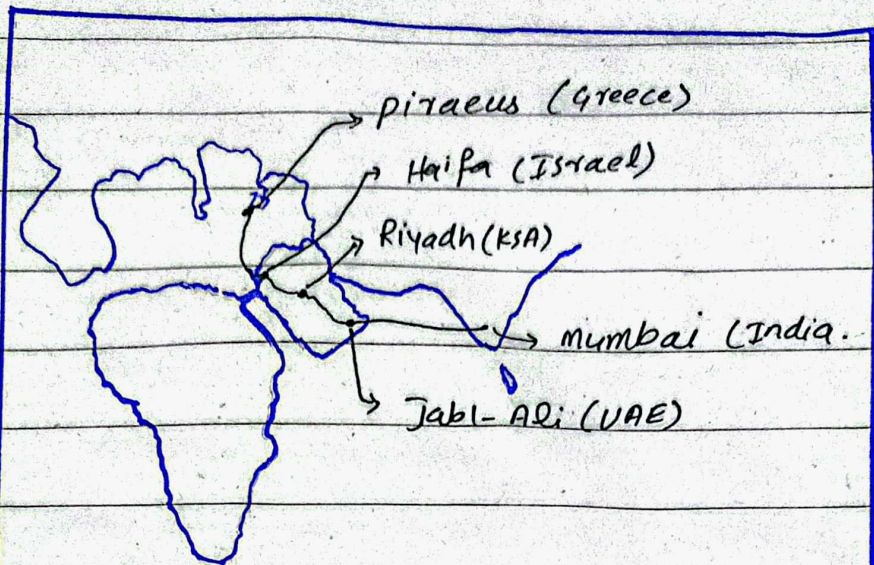 piraeus (Greece)
Haifa (Israel)
Riyadh (KSA)
mumbai (India.
Jabl-Ali (UAE)